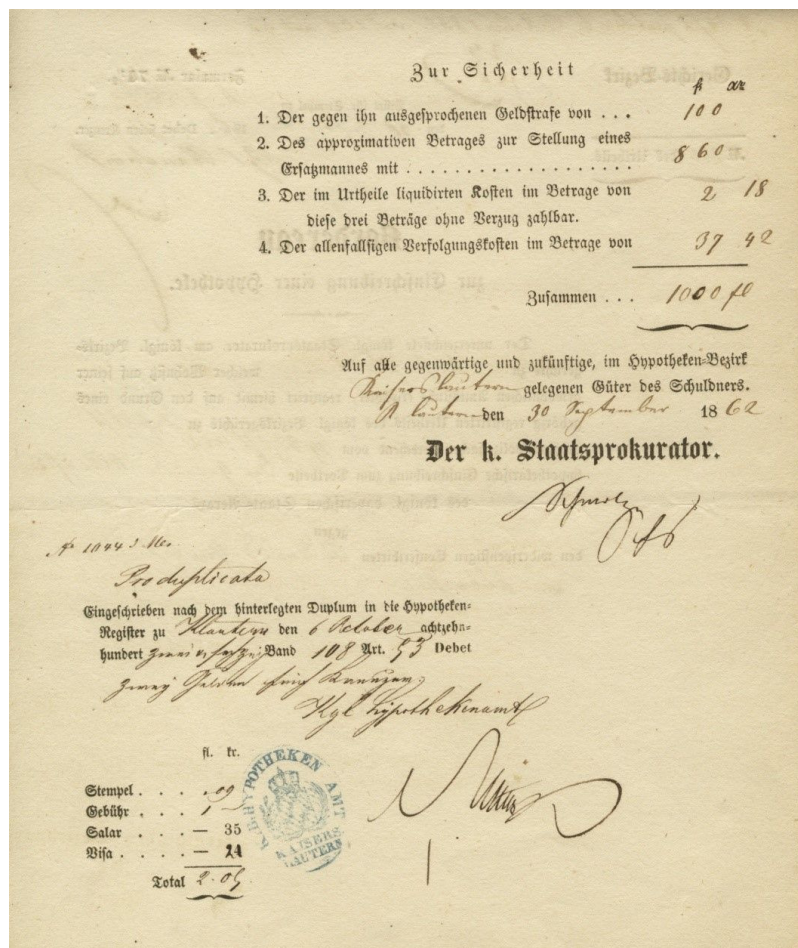 Zur Sicherheit
fl xr
1. Der gegen ihn ausgesprochenen Geldstrafe von . . . 100
2. Des approximativen Betrages zur Stellung eines
Ersatzmannes mit . . . . . . . . . . . . . . . . . . . 860
3. Der im Urtheile liquidirten Kosten im Betrage von 2 18
diese drei Beträge ohne Verzug zahlbar.
4. Der allenfallsigen Verfolgungskosten im Betrage von 37 42
Zusammen . . . 1000 fl
Auf alle gegenwärtige und zukünftige, im Hypotheken-Bezirk
Kaiserslautern gelegenen Güter des Schuldners.
Klautern den 30 September 1862
Der k. Staatsprokurator.
Pro duplicata
Eingeschrieben nach dem hinterlegten Duplum in die Hypotheken-
Register zu Klautern den 6 October achtzehn-
hundert zwei u sechzig Band 108 Art. 53 Debet
zwey Gulden fünf Kreuzer.
Kgl Hypothekenamt
fl. kr.
Stempel . . . . 09
Gebühr . . . 1 —
Salar . . . — 35
Visa . . . . — 21
Total 2.05
K.B. HYPOTHEKEN AMT
KAISERS
LAUTERN